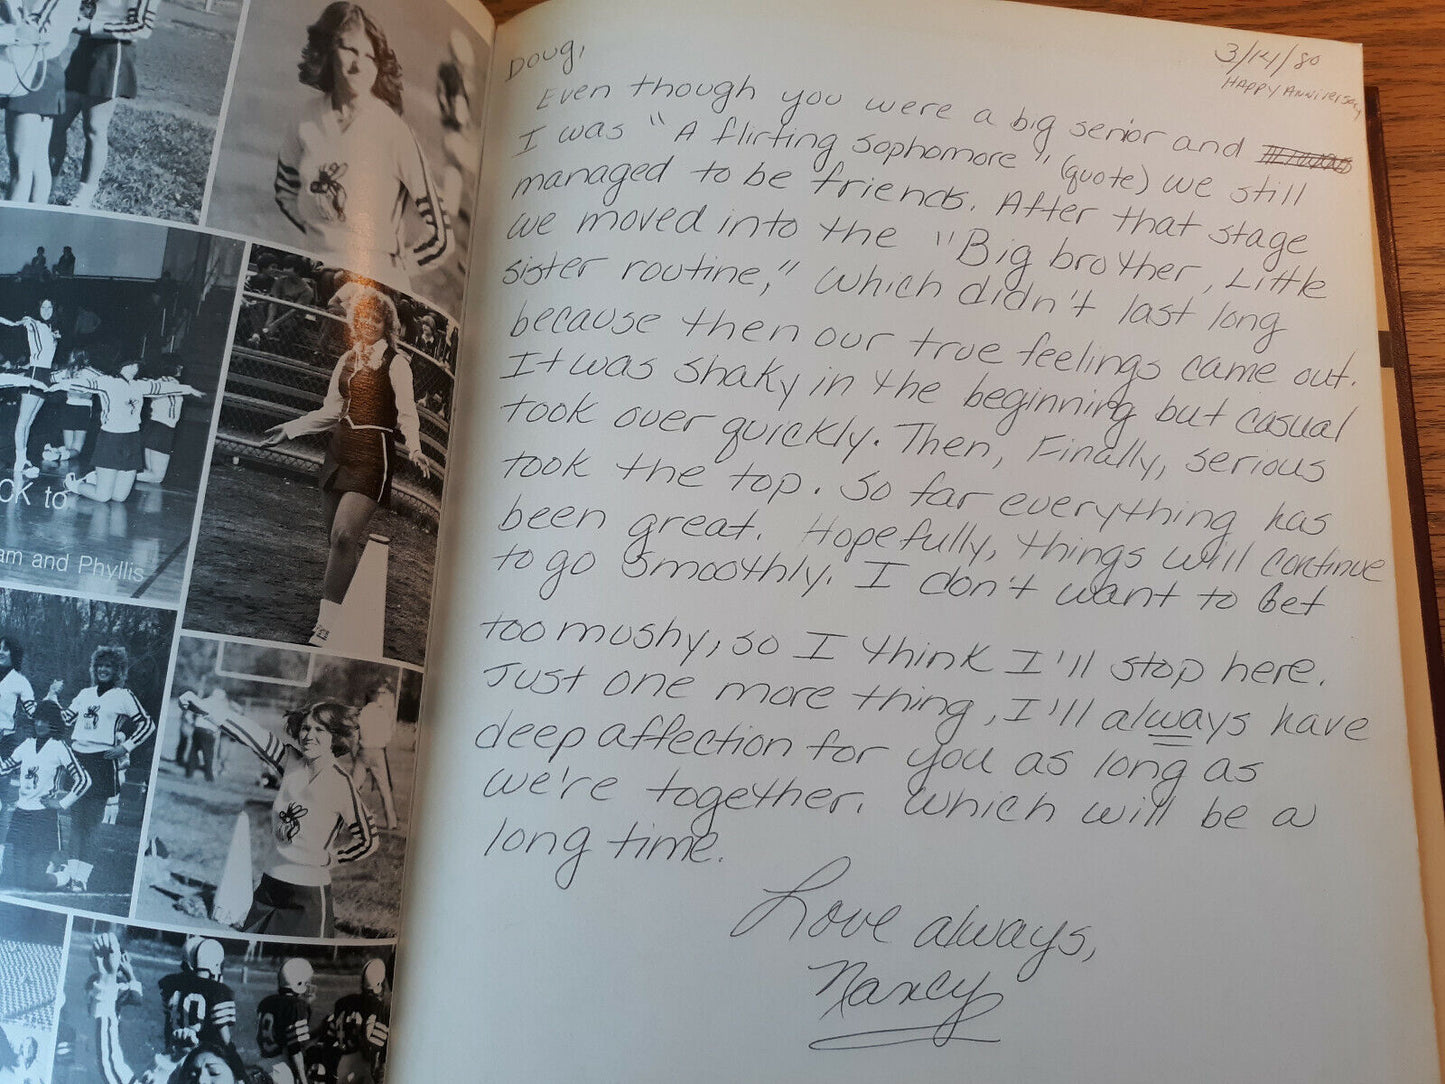 3/14/80
HAPPY ANNIVERSARY
Doug,
Even though you were a big senior and
I was "A flirting sophomore" (quote) we still
managed to be friends. After that stage
we moved into the "Big brother, Little
sister routine," which didn't last long
because then our true feelings came out.
It was shaky in the beginning but casual
took over quickly. Then, Finally, serious
took the top. So far everything has
been great. Hopefully, things will continue
to go smoothly. I don't want to get
too mushy, so I think I'll stop here.
Just one more thing, I'll always have
deep affection for you as long as
we're together. Which will be a
long time.
Love always,
Nancy
to
and Phyllis
10